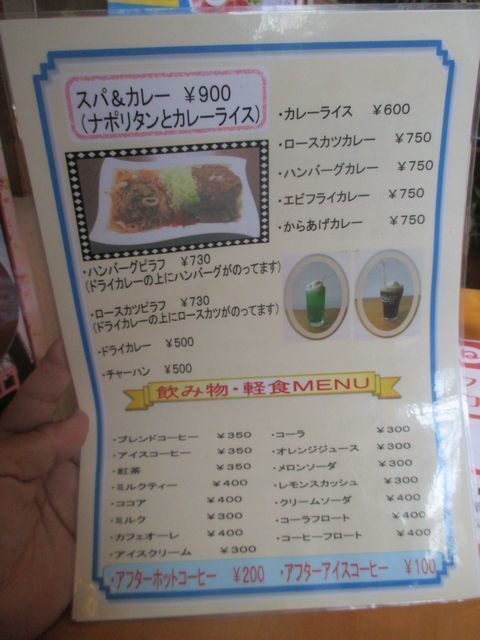 スパ&カレー ¥900
(ナポリタンとカレーライス)
・カレーライス ¥600
・ロースカツカレー ¥750
・ハンバーグカレー ¥750
・エビフライカレー ¥750
・からあげカレー ¥750
・ハンバーグピラフ ¥730
(ドライカレーの上にハンバーグがのってます)
・ロースカツピラフ ¥730
(ドライカレーの上にロースカツがのってます)
・ドライカレー ¥500
・チャーハン ¥500
飲み物・軽食MENU
・ブレンドコーヒー ¥350
・アイスコーヒー ¥350
・紅茶 ¥350
・ミルクティー ¥400
・ココア ¥400
・ミルク ¥300
・カフェオーレ ¥400
・アイスクリーム ¥300
・コーラ ¥300
・オレンジジュース ¥300
・メロンソーダ ¥300
・レモンスカッシュ ¥300
・クリームソーダ ¥400
・コーラフロート ¥400
・コーヒーフロート ¥400
・アフターホットコーヒー ¥200 ・アフターアイスコーヒー ¥100